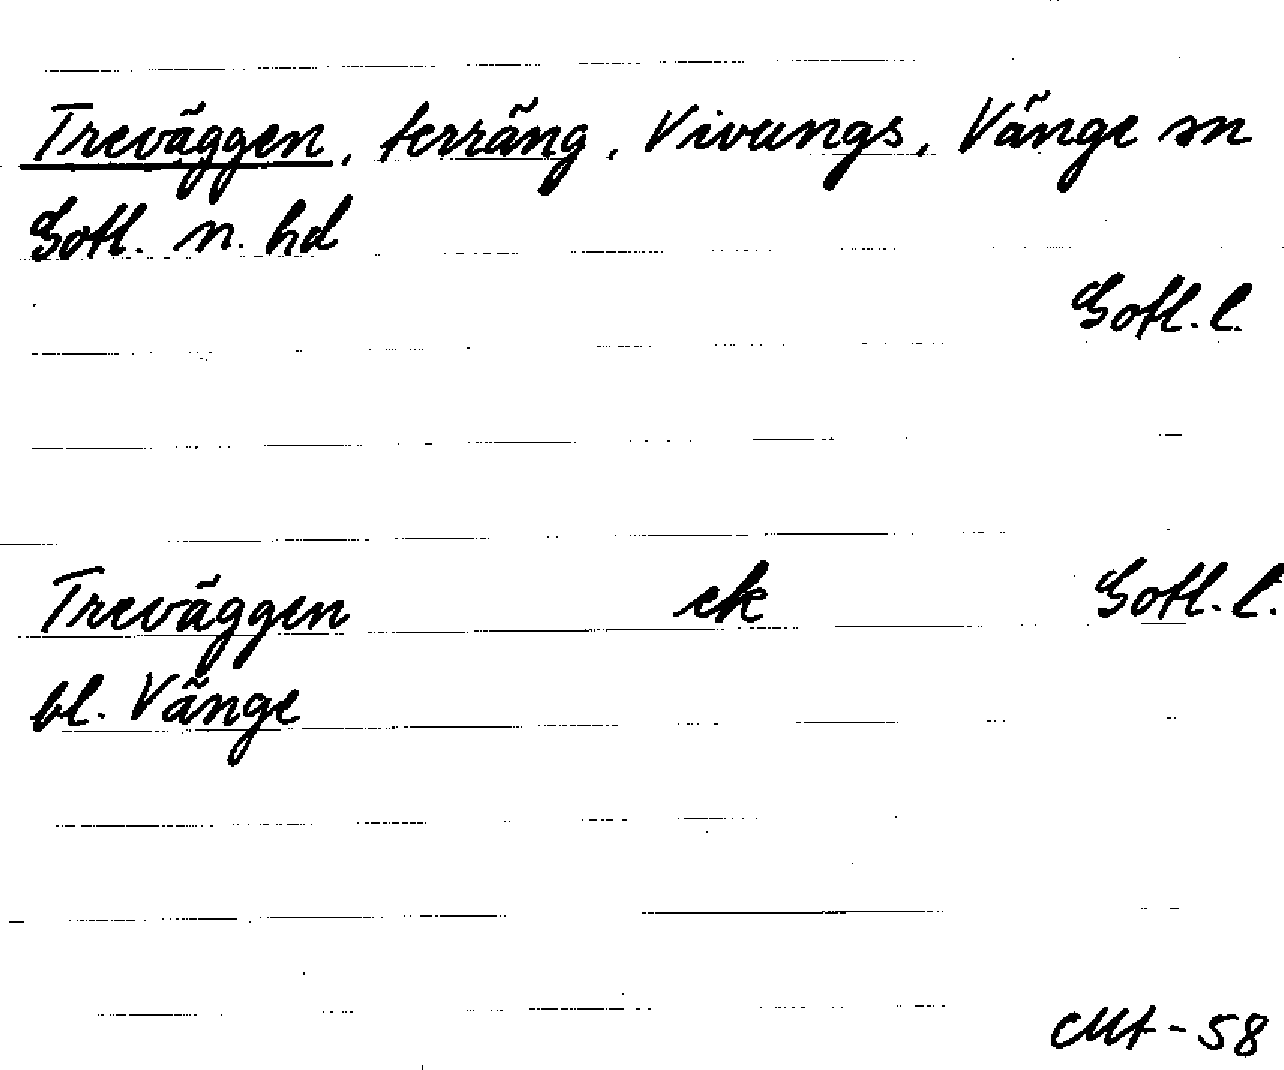 Treväggen, terräng, Vivungs, Vänge sn
Gotl. n. hd
Gotl. l.
Treväggen ek Gotl. l.
bl. Vänge
Mt-58